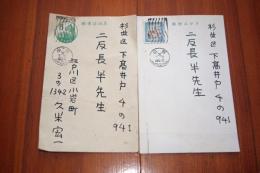 杉並区 下高井戸 4の941
二反長半先生
江戸川区小岩町
3の1342 久米宏一
杉並区 下高井戸 4の941
二反長半先生